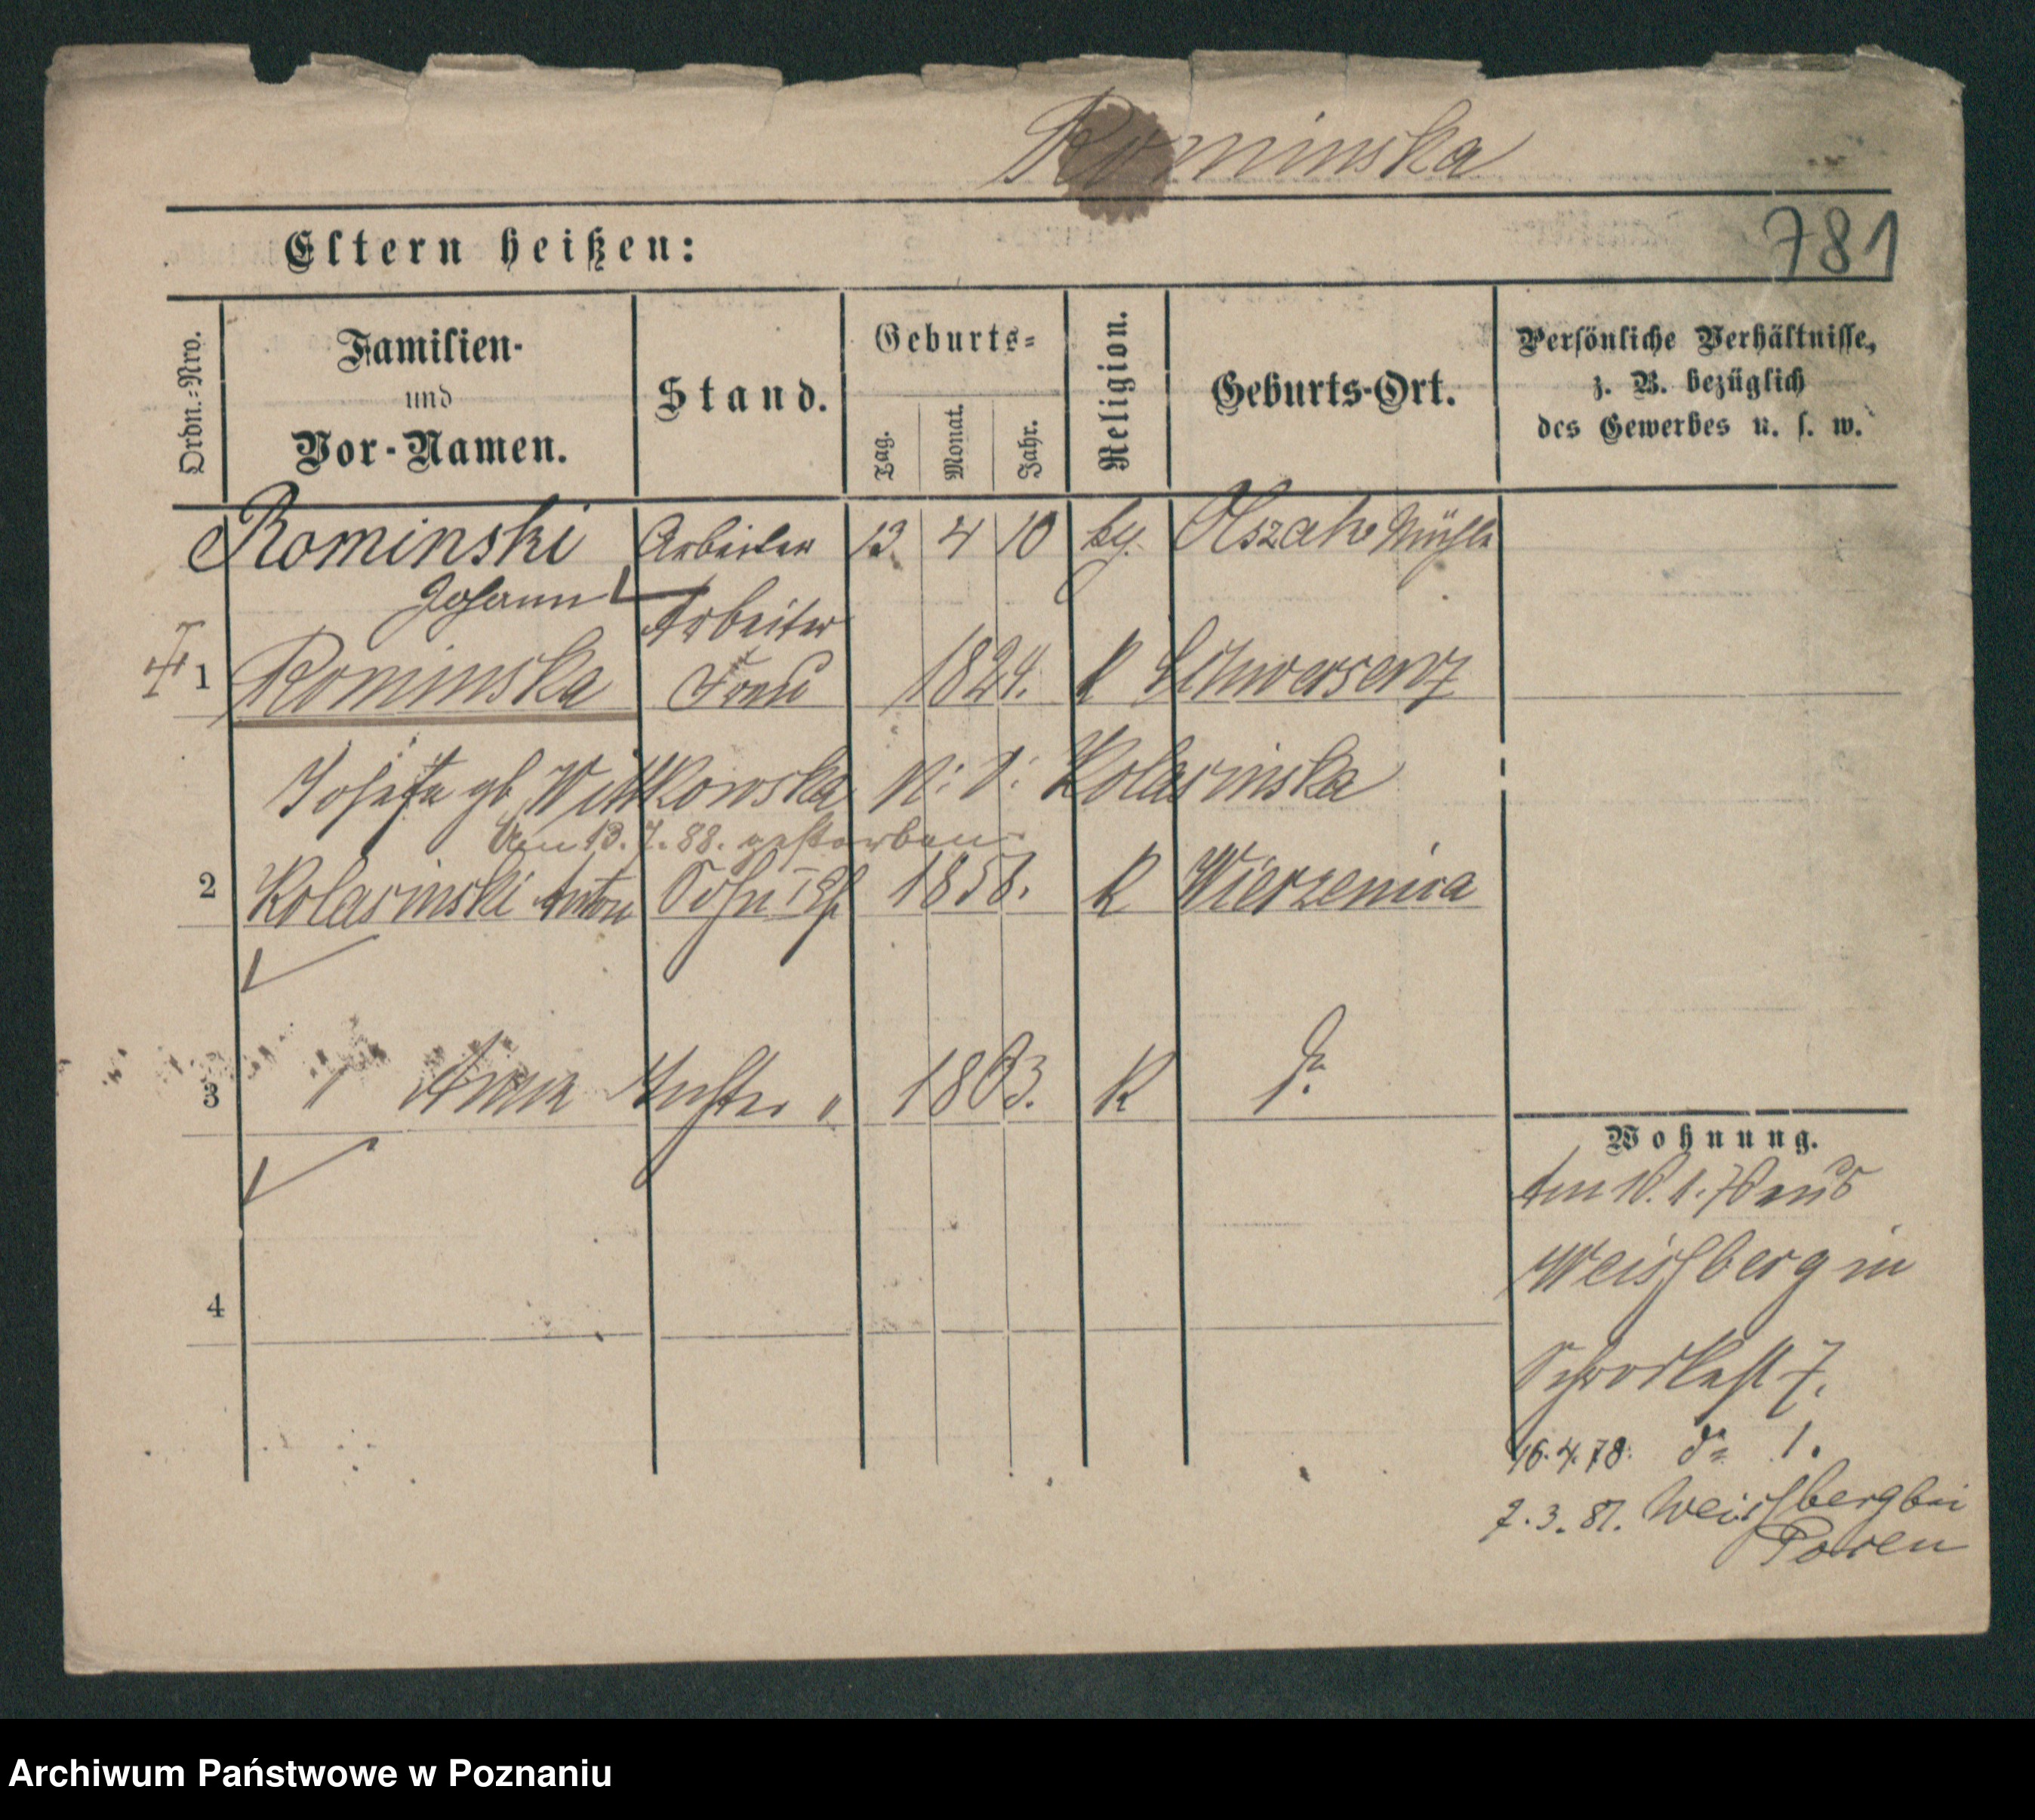 Rominska
781
Eltern heißen:
Ordn.-Nro.
Familien- und Vor-Namen.
Stand.
Geburts-
Tag. Monat. Jahr.
Religion.
Geburts-Ort.
Persönliche Verhältnisse, z. B. bezüglich des Gewerbes u. s. w.
Rominski Arbeiter 13 4 10 Mühle
Johann
Arbeiter
1 Rominska Frau 1824. K Schwersenz
Josefa gb Wittkowska Kolasinska
Am 13.7.88. gestorben
2 Kolasinski Anton Sohn 1856. K Wierzenica
3 " Anna Tochter " 1863. K do.
4
Wohnung.
Am aus
Weissberg in
Schrodkast 7.
16.4.78. do 1.
7.3.81. Weissberg bei
Posen
Archiwum Państwowe w Poznaniu